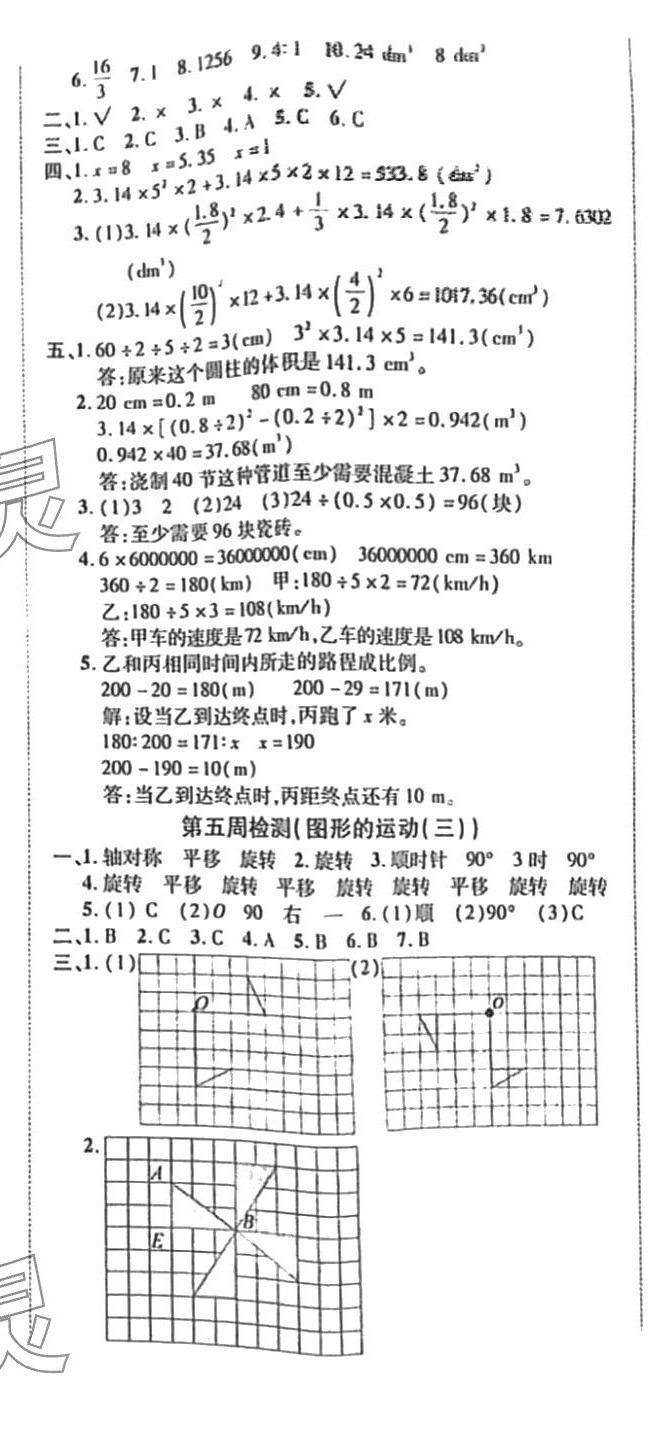 6. 16/3 7. 1 8. 1256 9. 4∶1 10. 24 dm³ 8 dm³
二、1. √ 2. × 3. × 4. × 5. √
三、1. C 2. C 3. B 4. A 5. C 6. C
四、1. x=8 x=5.35 x=1
2. 3.14×5²×2+3.14×5×2×12=533.8(dm²)
3. (1)3.14×(1.8/2)²×2.4+1/3×3.14×(1.8/2)²×1.8=7.6302
(dm³)
(2)3.14×(10/2)²×12+3.14×(4/2)²×6=1017.36(cm³)
五、1. 60÷2÷5÷2=3(cm) 3²×3.14×5=141.3(cm³)
答:原来这个圆柱的体积是141.3 cm³。
2. 20 cm=0.2 m 80 cm=0.8 m
3.14×[(0.8÷2)²-(0.2÷2)²]×2=0.942(m³)
0.942×40=37.68(m³)
答:浇制40节这种管道至少需要混凝土37.68 m³。
3. (1)3 2 (2)24 (3)24÷(0.5×0.5)=96(块)
答:至少需要96块瓷砖。
4. 6×6000000=36000000(cm) 36000000 cm=360 km
360÷2=180(km) 甲:180÷5×2=72(km/h)
乙:180÷5×3=108(km/h)
答:甲车的速度是72 km/h,乙车的速度是108 km/h。
5. 乙和丙相同时间内所走的路程成比例。
200-20=180(m) 200-29=171(m)
解:设当乙到达终点时,丙跑了x米。
180∶200=171∶x x=190
200-190=10(m)
答:当乙到达终点时,丙距终点还有10 m。
第五周检测(图形的运动(三))
一、1. 轴对称 平移 旋转 2. 旋转 3. 顺时针 90° 3时 90°
4. 旋转 平移 旋转 平移 旋转 旋转 平移 旋转 旋转
5. (1) C (2)O 90 右 一 6. (1)顺 (2)90° (3)C
二、1. B 2. C 3. C 4. A 5. B 6. B 7. B
三、1. (1) (2)
O O
2.
A
B
E
灵
灵